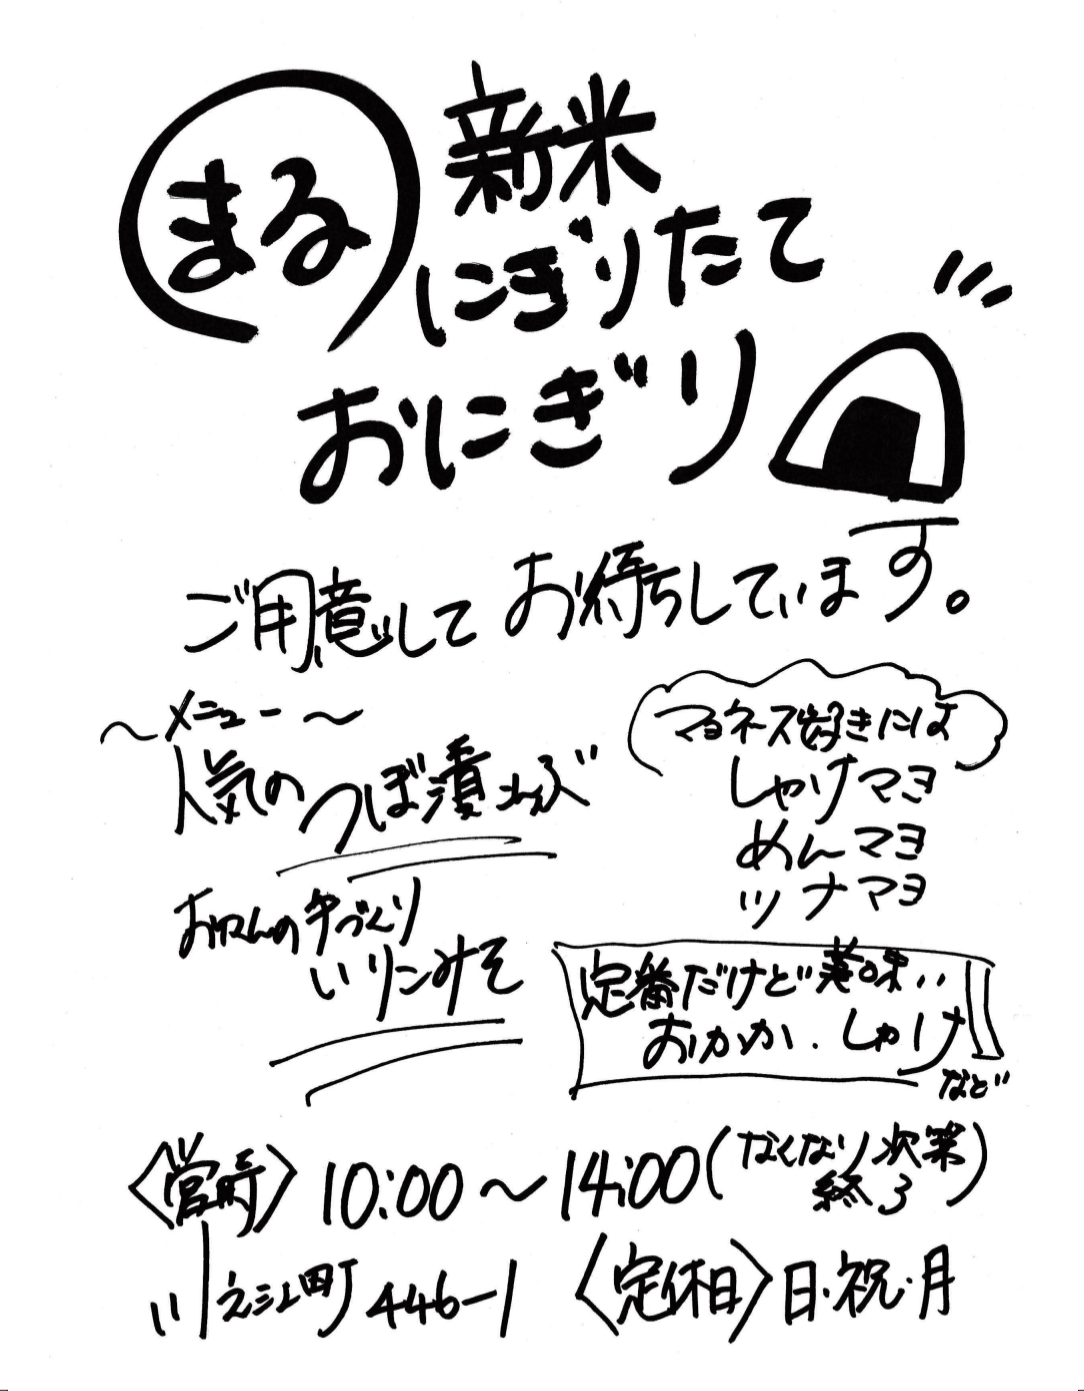 まる
新米
にぎりたて
おにぎり
ご用意して お待ちしています。
～メニュー～
人気の つぼ漬こんぶ
おかんの手づくり
いりこみそ
マヨネーズ好きには
しゃけマヨ
めんマヨ
ツナマヨ
定番だけど美味い
おかか.しゃけ
など
〈営時〉10:00～14:00(なくなり次第
終了)
川之江町446-1
〈定休日〉日・祝・月